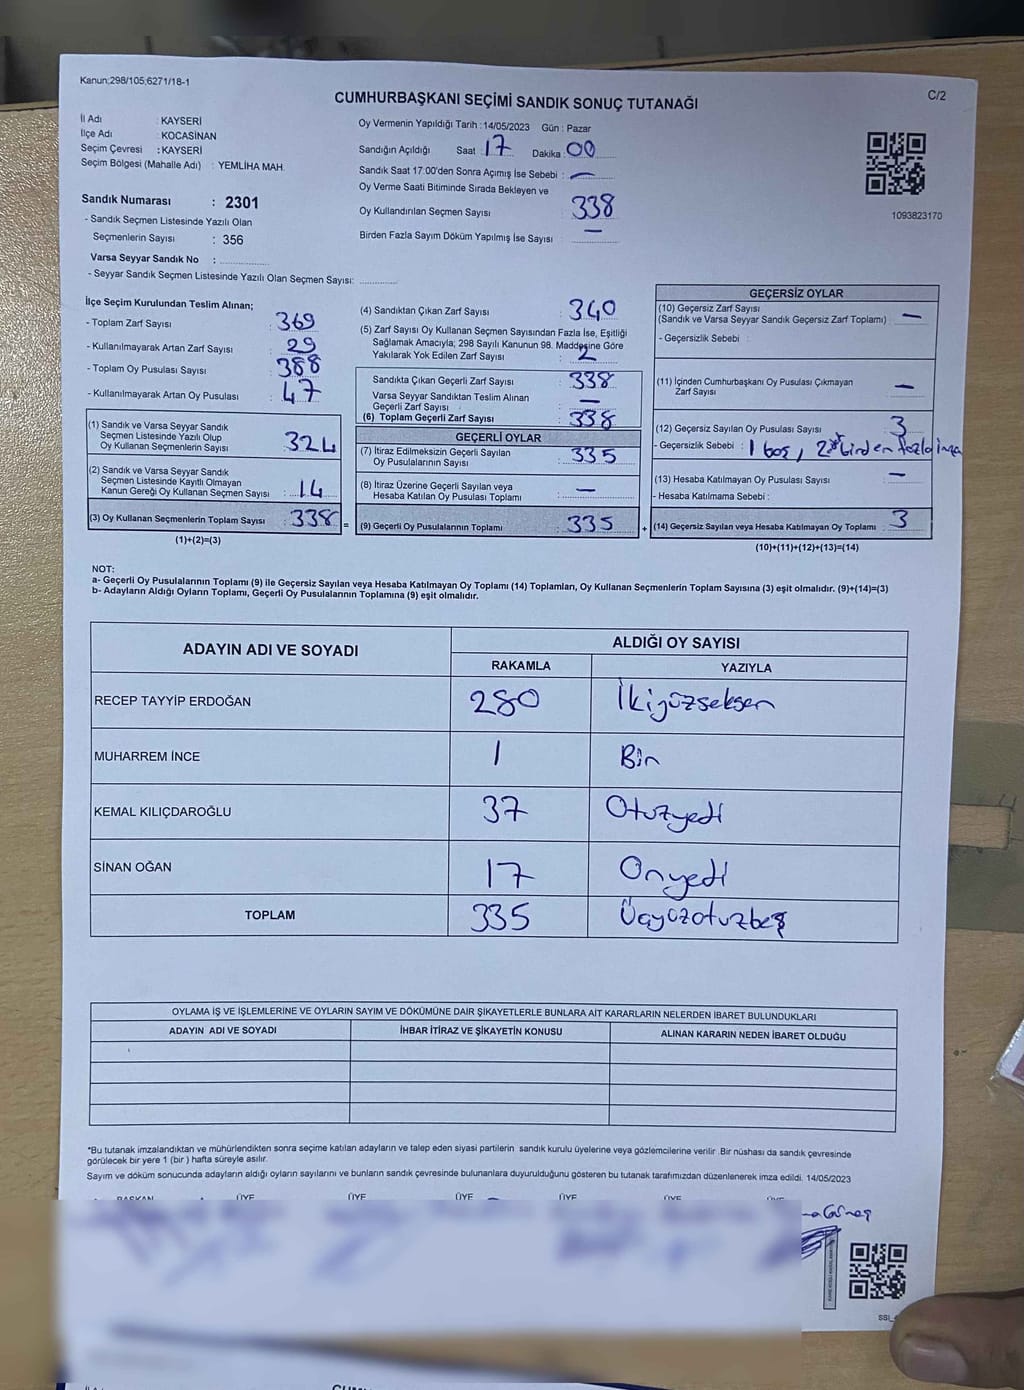 Kanun:298/105;6271/18-1
C/2
CUMHURBAŞKANI SEÇİMİ SANDIK SONUÇ TUTANAĞI
İl Adı : KAYSERİ
İlçe Adı : KOCASİNAN
Seçim Çevresi : KAYSERİ
Seçim Bölgesi (Mahalle Adı) : YEMLİHA MAH.
Sandık Numarası : 2301
- Sandık Seçmen Listesinde Yazılı Olan
Seçmenlerin Sayısı : 356
Varsa Seyyar Sandık No :
- Seyyar Sandık Seçmen Listesinde Yazılı Olan Seçmen Sayısı:
Oy Vermenin Yapıldığı Tarih :14/05/2023 Gün : Pazar
Sandığın Açıldığı Saat : 17 Dakika : 00
Sandık Saat 17.00'den Sonra Açımış İse Sebebi : —
Oy Verme Saati Bitiminde Sırada Bekleyen ve
Oy Kullandırılan Seçmen Sayısı : 338
Birden Fazla Sayım Döküm Yapılmış İse Sayısı : —
1093823170
İlçe Seçim Kurulundan Teslim Alınan;
- Toplam Zarf Sayısı : 369
- Kullanılmayarak Artan Zarf Sayısı : 29
- Toplam Oy Pusulası Sayısı : 388
- Kullanılmayarak Artan Oy Pusulası : 47
(1) Sandık ve Varsa Seyyar Sandık
Seçmen Listesinde Yazılı Olup
Oy Kullanan Seçmenlerin Sayısı : 324
(2) Sandık ve Varsa Seyyar Sandık
Seçmen Listesinde Kayıtlı Olmayan
Kanun Gereği Oy Kullanan Seçmen Sayısı : 14
(3) Oy Kullanan Seçmenlerin Toplam Sayısı : 338 =
(1)+(2)=(3)
(4) Sandıktan Çıkan Zarf Sayısı : 340
(5) Zarf Sayısı Oy Kullanan Seçmen Sayısından Fazla İse, Eşitliği
Sağlamak Amacıyla; 298 Sayılı Kanunun 98. Maddesine Göre
Yakılarak Yok Edilen Zarf Sayısı : 2
Sandıkta Çıkan Geçerli Zarf Sayısı : 338
Varsa Seyyar Sandıktan Teslim Alınan
Geçerli Zarf Sayısı : —
(6) Toplam Geçerli Zarf Sayısı : 338
GEÇERLİ OYLAR
(7) İtiraz Edilmeksizin Geçerli Sayılan
Oy Pusulalarının Sayısı : 335
(8) İtiraz Üzerine Geçerli Sayılan veya
Hesaba Katılan Oy Pusulası Toplamı : —
(9) Geçerli Oy Pusulalarının Toplamı : 335 +
GEÇERSİZ OYLAR
(10) Geçersiz Zarf Sayısı
(Sandık ve Varsa Seyyar Sandık Geçersiz Zarf Toplamı) : —
- Geçersizlik Sebebi :
(11) İçinden Cumhurbaşkanı Oy Pusulası Çıkmayan
Zarf Sayısı : —
(12) Geçersiz Sayılan Oy Pusulası Sayısı : 3
- Geçersizlik Sebebi : 1 boş, 2 birden fazla imza
(13) Hesaba Katılmayan Oy Pusulası Sayısı : —
- Hesaba Katılmama Sebebi :
(14) Geçersiz Sayılan veya Hesaba Katılmayan Oy Toplamı : 3
(10)+(11)+(12)+(13)=(14)
NOT:
a- Geçerli Oy Pusulalarının Toplamı (9) ile Geçersiz Sayılan veya Hesaba Katılmayan Oy Toplamı (14) Toplamları, Oy Kullanan Seçmenlerin Toplam Sayısına (3) eşit olmalıdır. (9)+(14)=(3)
b- Adayların Aldığı Oyların Toplamı, Geçerli Oy Pusulalarının Toplamına (9) eşit olmalıdır.
ADAYIN ADI VE SOYADI
ALDIĞI OY SAYISI
RAKAMLA YAZIYLA
RECEP TAYYİP ERDOĞAN 280 İkiyüzseksen
MUHARREM İNCE 1 Bin
KEMAL KILIÇDAROĞLU 37 Otuzyedi
SİNAN OĞAN 17 Onyedi
TOPLAM 335 Üçyüzotuzbeş
OYLAMA İŞ VE İŞLEMLERİNE VE OYLARIN SAYIM VE DÖKÜMÜNE DAİR ŞİKAYETLERLE BUNLARA AİT KARARLARIN NELERDEN İBARET BULUNDUKLARI
ADAYIN ADI VE SOYADI İHBAR İTİRAZ VE ŞİKAYETİN KONUSU ALINAN KARARIN NEDEN İBARET OLDUĞU
*Bu tutanak imzalandıktan ve mühürlendikten sonra seçime katılan adayların ve talep eden siyasi partilerin sandık kurulu üyelerine veya gözlemcilerine verilir .Bir nüshası da sandık çevresinde
görülecek bir yere 1 (bir ) hafta süreyle asılır.
Sayım ve döküm sonucunda adayların aldığı oyların sayılarını ve bunların sandık çevresinde bulunanlara duyurulduğunu gösteren bu tutanak tarafımızdan düzenlenerek imza edildi. 14/05/2023
BAŞKAN ÜYE ÜYE ÜYE ÜYE ÜYE